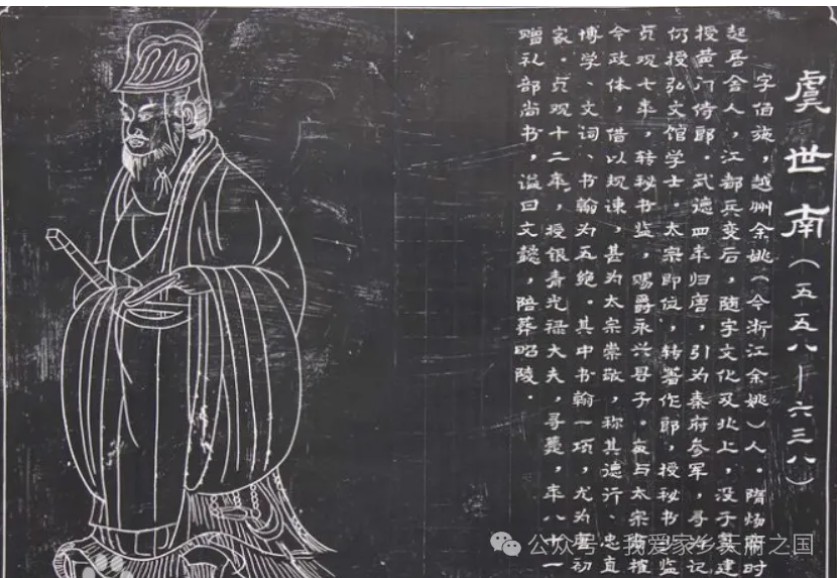 虞世南（五五八—六三八）
字伯施，越州余姚（今浙江余姚）人，隋炀帝时
起居舍人，江都兵变后，随宇文化及北上，没于窦建
授黄门侍郎．武德四年归唐，引为秦府参军，寻为记
何授弘文馆学士．太宗即位，转著作郎，授秘书监
贞观七年，转秘书监，赐爵永兴县子．每与太宗榷
令政体，借以规谏，甚为太宗崇敬，称其德行、忠直
博学、文词、书翰为五绝．其中书翰一项，尤为唐初
家．贞观十二年，授银青光禄大夫，寻薨，年八十一
赠礼部尚书，谥曰文懿，陪葬昭陵．
公众号·我爱家乡天府之国